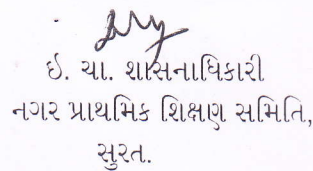 ઇ. ચા. શાસનાધિકારી
નગર પ્રાથમિક શિક્ષણ સમિતિ,
સુરત.